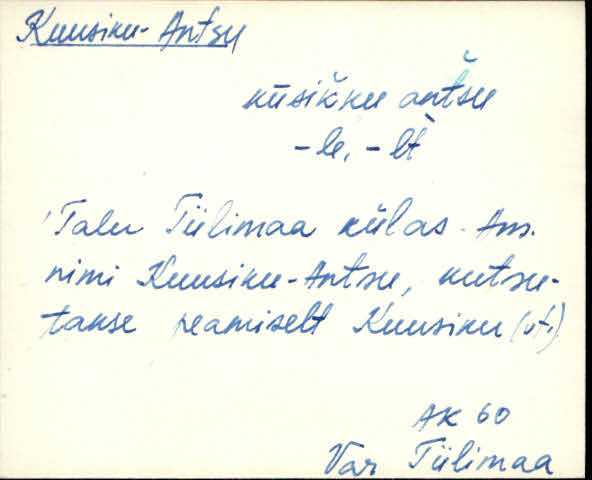 Kuusiku-Antsu
kūsikku antsu
-le, -lt
Talu Tiilimaa külas. Am.
nimi Kuusiku-Antsu, kutsu-
takse peamiselt Kuusiku (vt.)
AK 60
Var Tiilimaa